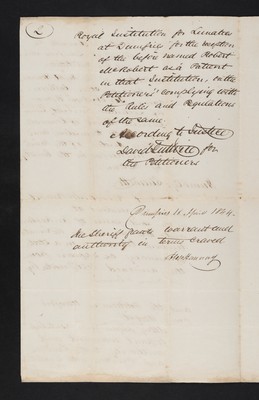 2
Royal Institution for Lunatics
at Dumfries for the reception
of the before named Robert
McRobert as a Patient
in that Institution, on the
Petitioners complying with
the Rules and Regulations
of the same
According to Justice
David for
the Petitioners
Dumfries 11 April 1844.
The Sheriff grants warrant and
authority in terms craved